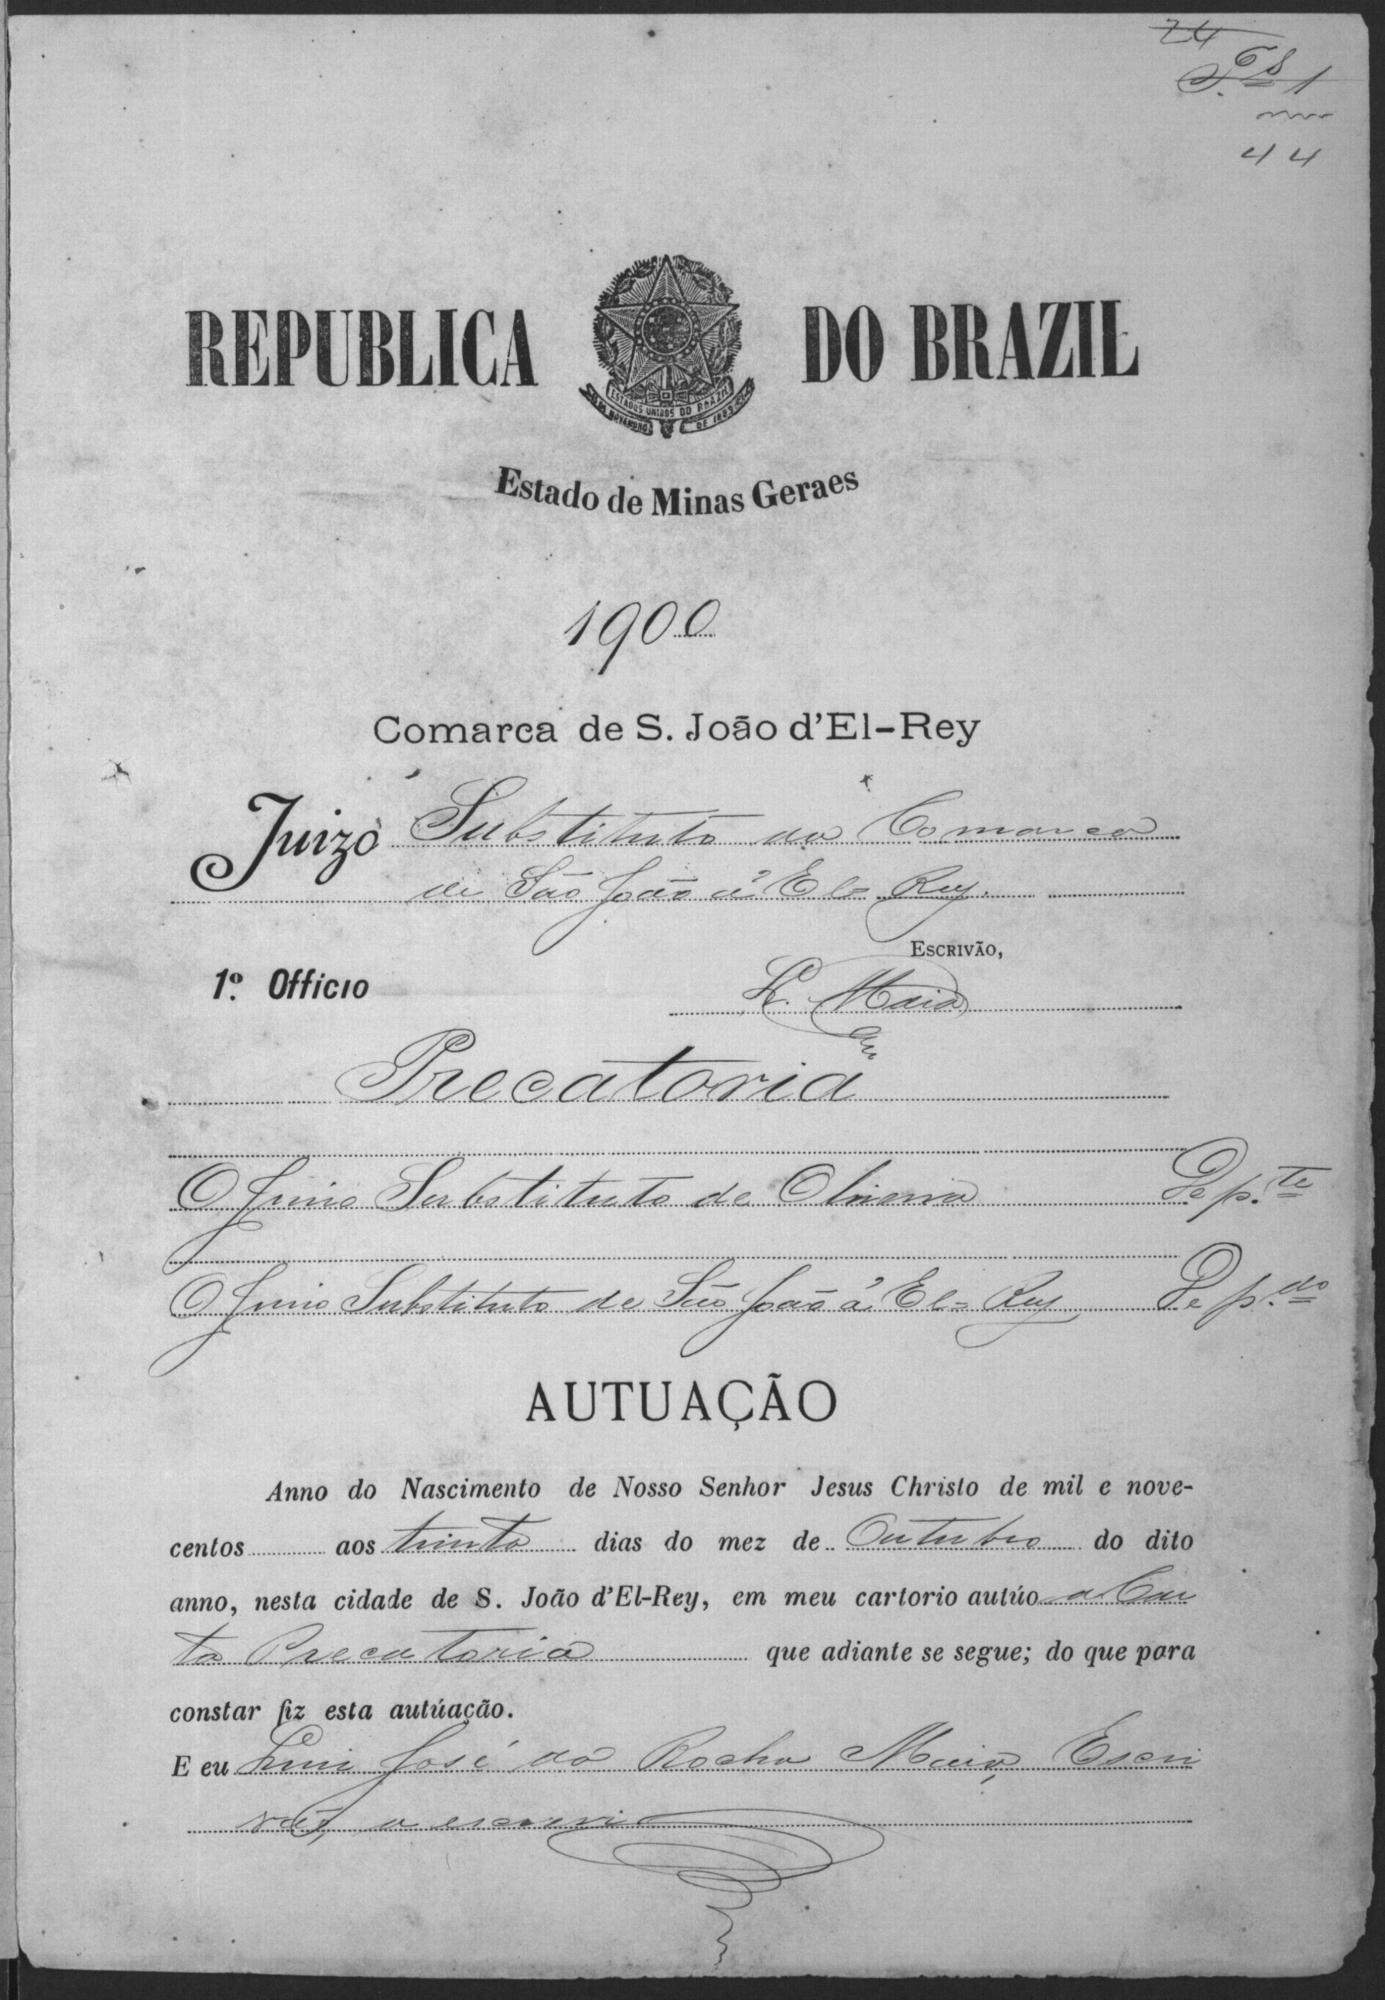 24
Fs 1
44
REPUBLICA DO BRAZIL
ESTADOS UNIDOS DO BRAZIL
15 DE NOVEMBRO DE 1889
Estado de Minas Geraes
1900
Comarca de S. João d'El-Rey
Juizo Substituto da Comarca
de São João d'El-Rey.
ESCRIVÃO,
1º. Officio L. Maia
Precatoria
O Juizo Substituto de Oliveira Dep.te
O Juizo Substituto de São João d'El-Rey Dep.do
AUTUAÇÃO
Anno do Nascimento de Nosso Senhor Jesus Christo de mil e nove-
centos aos trinta dias do mez de Outubro do dito
anno, nesta cidade de S. João d'El-Rey, em meu cartorio autúo a Car
ta Precatoria que adiante se segue; do que para
constar fiz esta autúação.
E eu Luiz José da Rocha Maia, Escri
vão, o escrevi